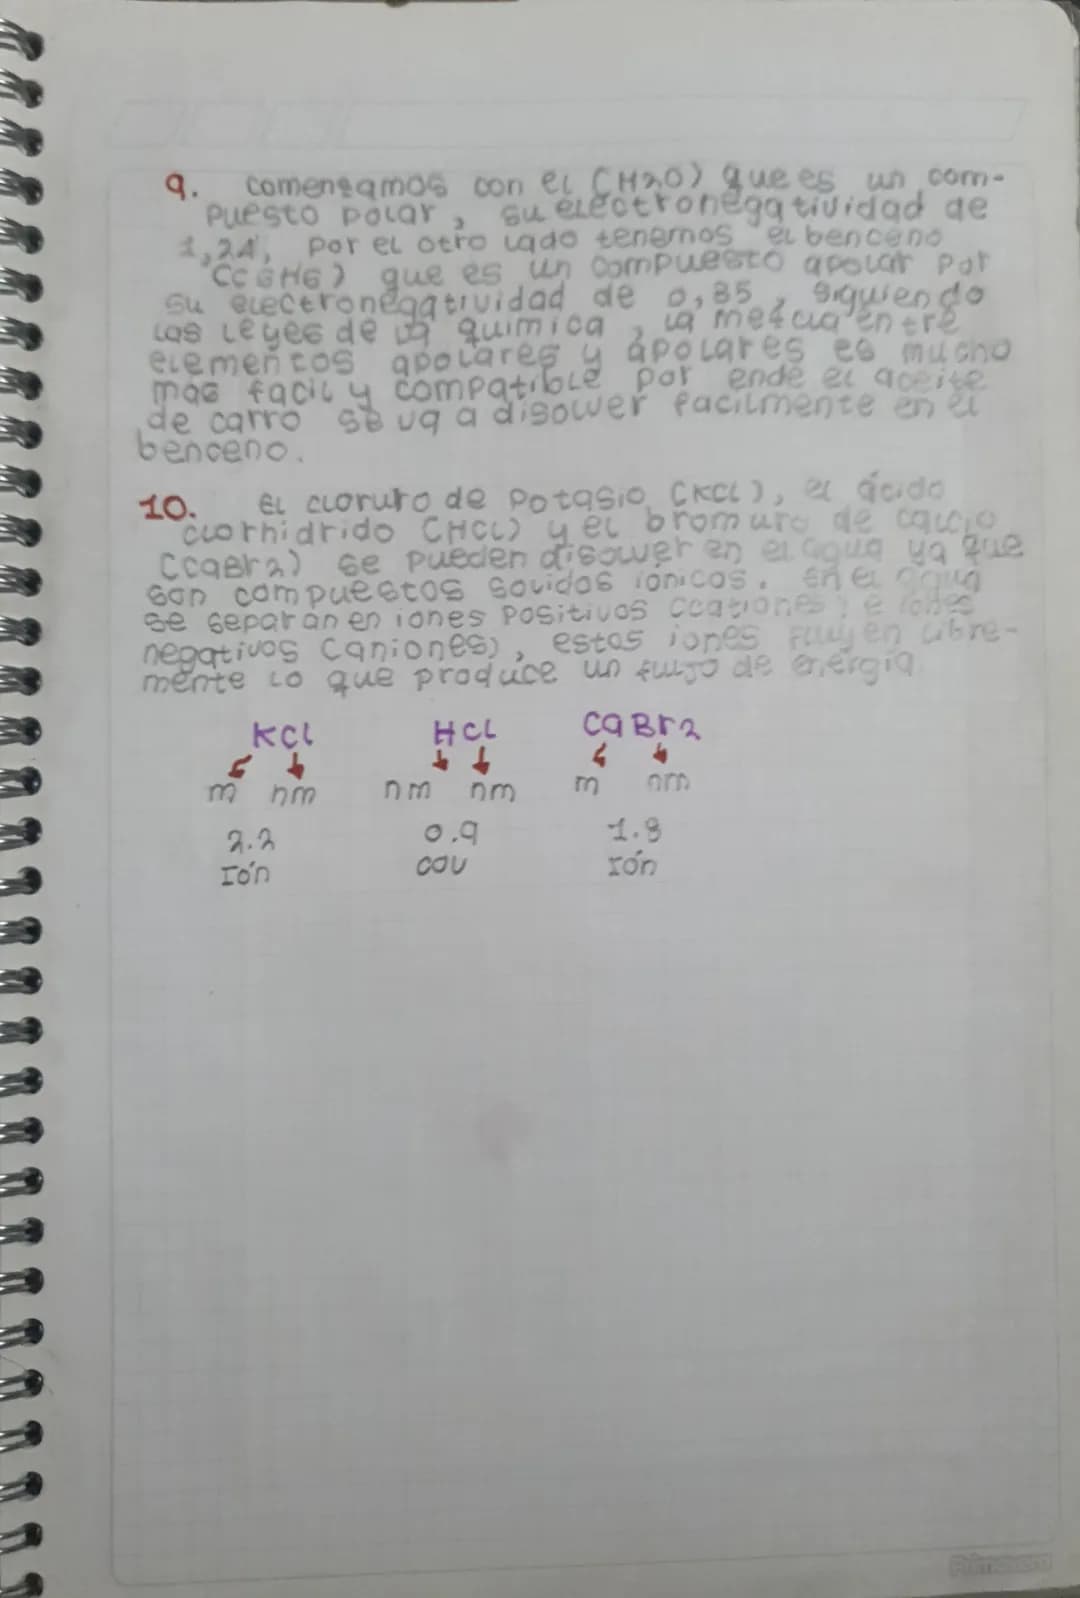 9. comenzamos con el (H2O) que es un com-
puesto polar, su electronegatividad de
1,24, por el otro lado tenemos el benceno
(C6H6) que es un compuesto apolar por
su electronegatividad de 0,35, siguiendo
las leyes de la quimica, la mezcla entre
elementos apolares y apolares es mucho
mas facil y compatible por ende el aceite
de carro se va a disolver facilmente en el
benceno.
10. El cloruro de potasio (KCl), el ácido
clorhidrido (HCl) y el bromuro de calcio
(CaBr2) se pueden disolver en el agua ya que
son compuestos solidos ionicos. en el agua
se separan en iones positivos (cationes) e iones
negativos (aniones), estos iones fluyen libre-
mente lo que produce un flujo de energia
KCl HCl CaBr2
m nm nm nm m nm
2.2 0.9 1.8
Ión cov Ión